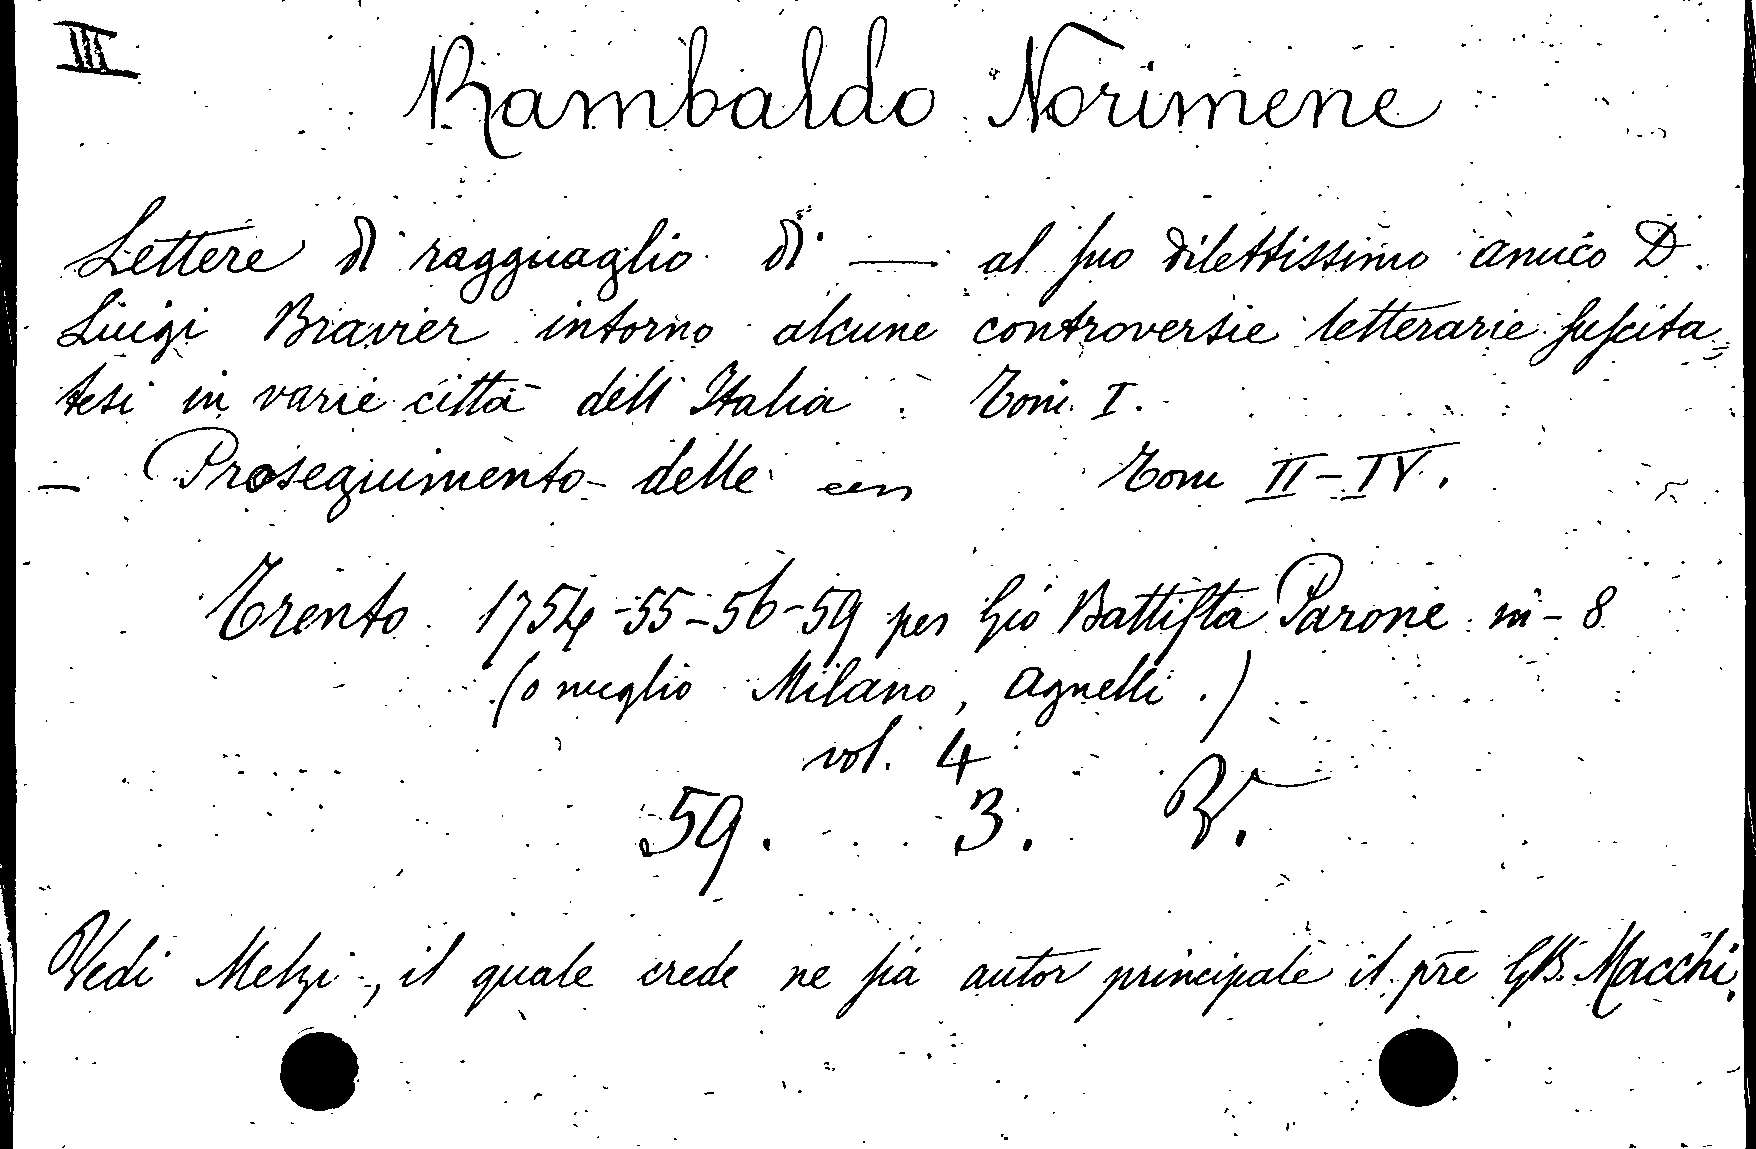 III
Rambaldo Norimene
Lettere di ragguaglio di — al suo dilettissimo amico D.
Luigi Bravier intorno alcune controversie letterarie suscita=
tesi in varie città dell'Italia. Tom. I.
— Proseguimento delle Tom II-IV.
Trento 1754-55-56-59 per Gio Battista Parone in-8
(o meglio Milano, Agnelli.)
vol. 4
59. 3.
Vedi Melzi, il quale crede ne sia autor principale il pre GB. Macchi.